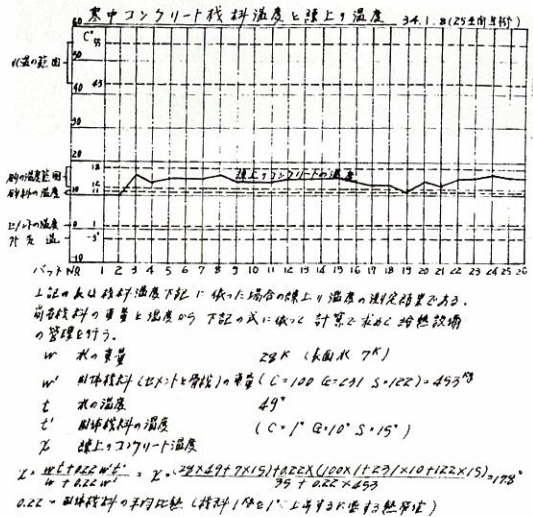 寒中コンクリート材料温度と練上り温度 34.1.8
60
C°
55
50
水温の範囲
43
40
30
20
18
砂の温度範囲
練上りコンクリートの温度
12
砂利の温度
10
11
セメントの温度
0
1
外気温
-5°
-10
バッチNo 1 2 3 4 5 6 7 8 9 10 11 12 13 14 15 16 17 18 19 20 21 22 23 24 25 26
上記の表は材料温度下記に依った場合の練上り温度の測定結果である.
材料の重量と温度から下記の式に依って計算で求めて給熱設備
の管理を行う.
w 水の重量 28K (表面水 7K)
w' 固体材料(セメントと骨材)の重量(C=100 G=231 S=122)=453Kg
t 水の温度 49°
t' 固体材料の温度 (C=1° G=10° S=15°)
x 練上りコンクリート温度
x = wt+0.22w't' / w+0.22w' = x = (28×49+7×15)+0.22×(100×1+231×10+122×15) / 35+0.22×453 = 17.8°
0.22 = 固体材料の平均比熱 (材料1Kgを1°上昇するに要する熱容量)